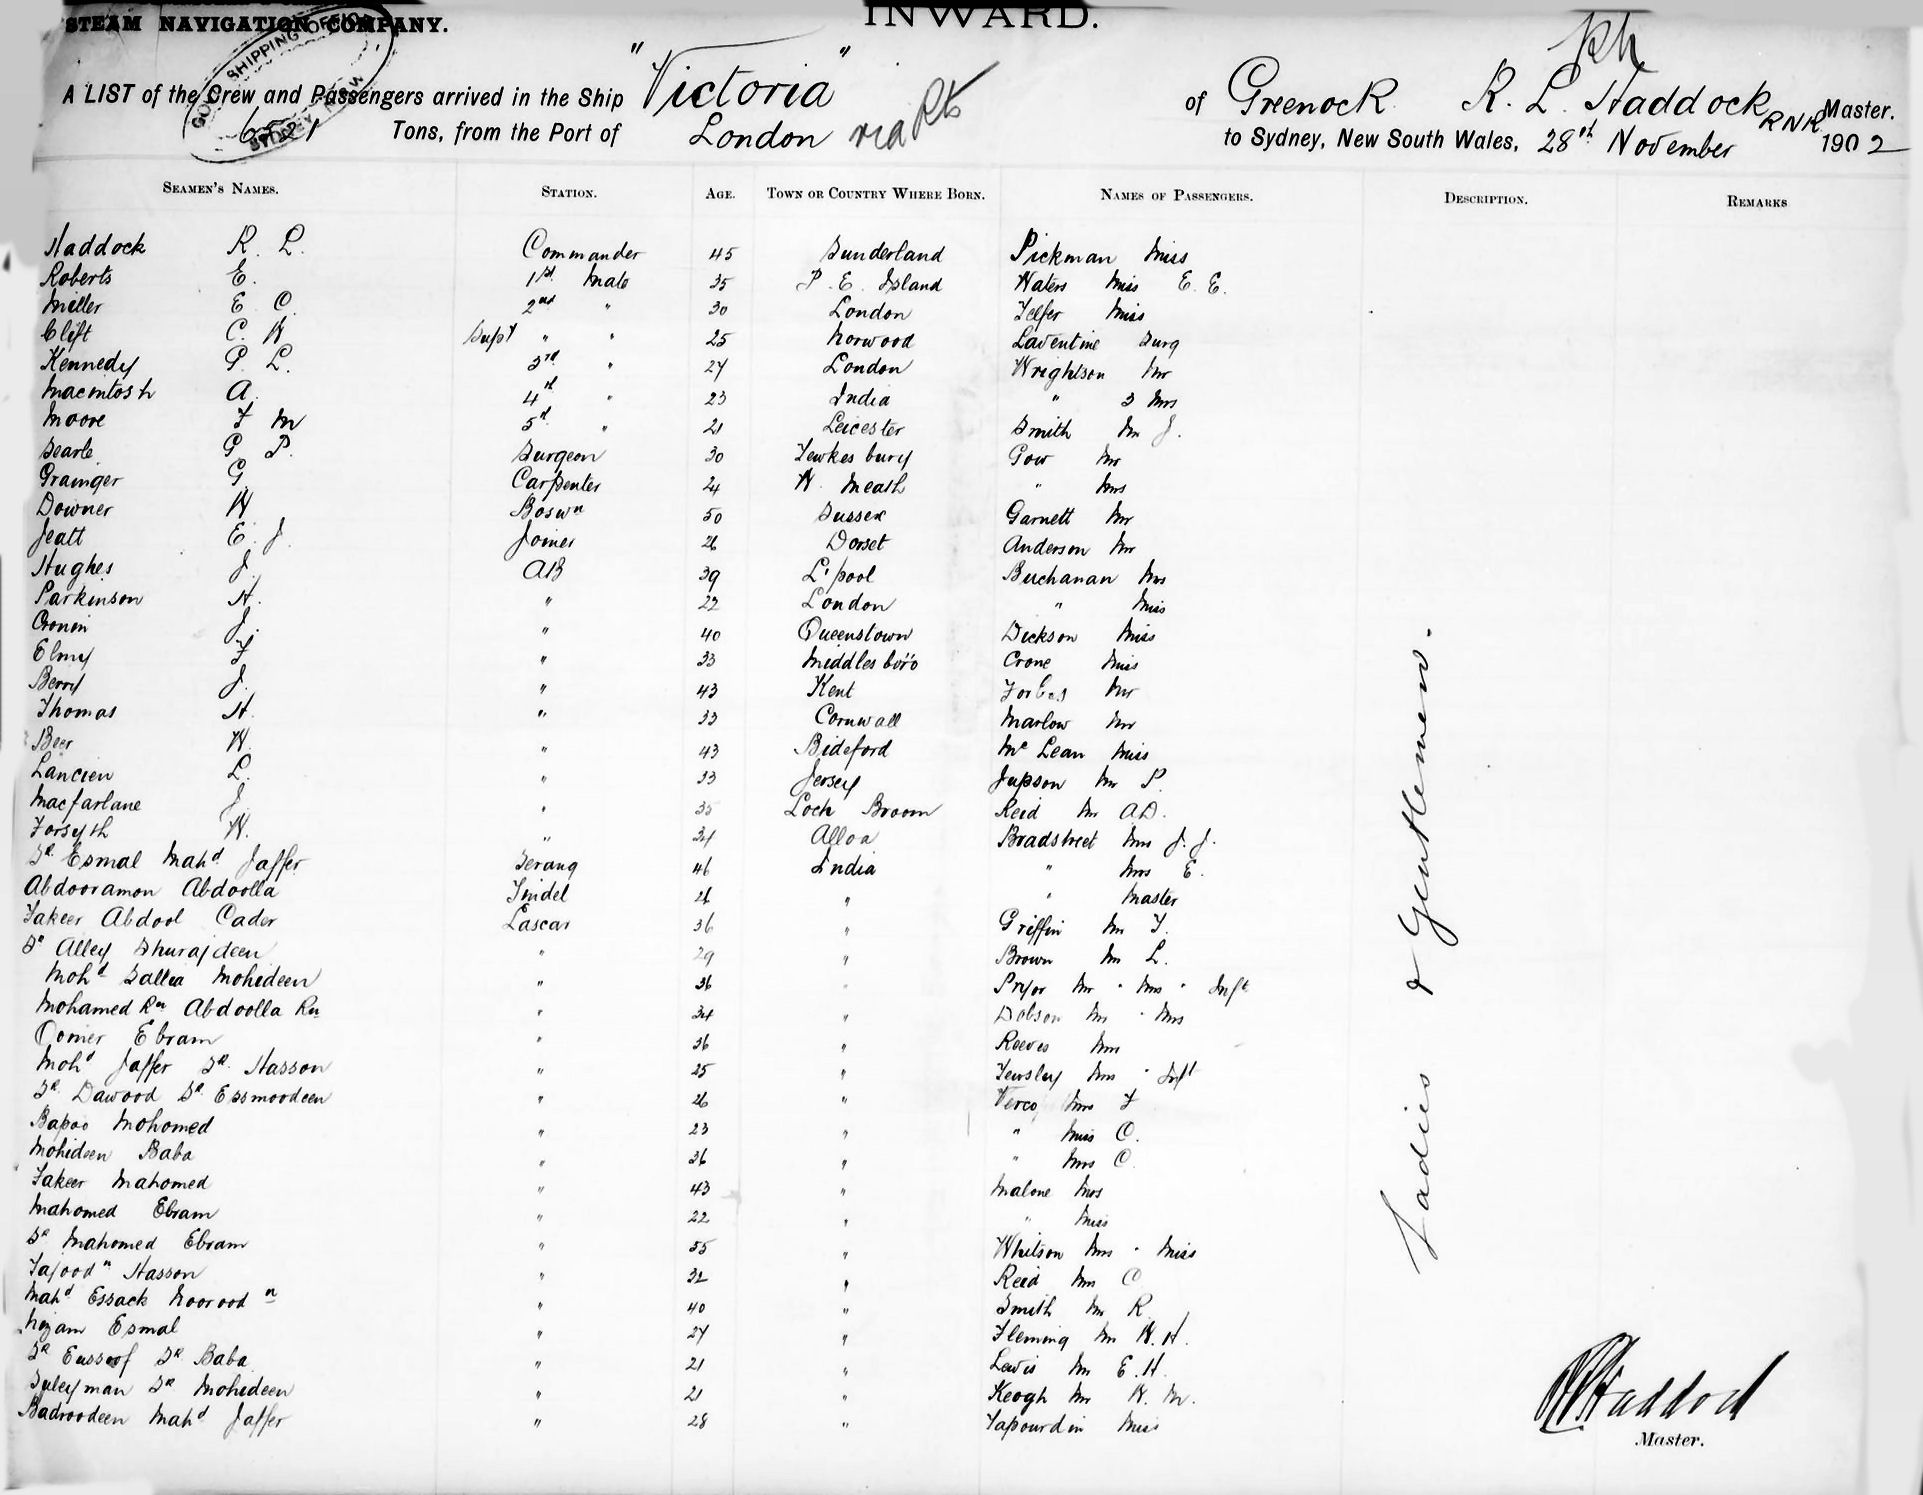 INWARD.
STEAM NAVIGATION COMPANY.
GOVT SHIPPING OFFICE SYDNEY N.S.W
A LIST of the Crew and Passengers arrived in the Ship "Victoria" of Greenock R. L. Haddock RNR Master.
6521 Tons, from the Port of London via Pts to Sydney, New South Wales, 28th November 1902
SEAMEN'S NAMES. STATION. AGE. TOWN OR COUNTRY WHERE BORN. NAMES OF PASSENGERS. DESCRIPTION. REMARKS
Haddock R. L. Commander 45 Sunderland Pickman Miss
Roberts E. 1st Mate 35 P. E. Island Waters Miss E. E.
Miller E C. 2nd " 30 London Telfer Miss
Clift C. W Supy " " 25 Norwood Laventine Surg
Kennedy G. L. 3rd " 27 London Wrightson Mr
Macintosh A. 4th " 23 India " 3 Mrs
Moore F M 5th " 21 Leicester Smith Mr J.
Searle G P. Surgeon 30 Tewkesbury Gow Mr
Grainger G. Carpenter 24 W. Meath " Mrs
Downer W Boswn 50 Sussex Garnett Mr
Jeatt E. J. Joiner 26 Dorset Anderson Mr
Hughes J. AB 39 L'pool Buchanan Mrs
Parkinson H. " 22 London " Miss
Cronin J. " 40 Queenstown Dickson Miss
Elmy F " 33 Middlesboro Crone Miss
Berry J. " 43 Kent Forbes Mr
Thomas H. " 33 Cornwall Marlow Mr
Beer W. " 43 Bideford Mc Lean Miss
Lancien L. " 33 Jersey Jupson Mr P.
Macfarlane J. " 35 Loch Broom Reid Mr AD.
Forsyth W. " 34 Alloa Broadstreet Mrs J. J.
Sk Esmal Mahd Jaffer Serang 46 India " Mrs E.
Abdooramon Abdoolla Tindel 26 " " Master
Fakeer Abdool Cader Lascar 36 " Griffin Mr F.
Sk Alley Shurajdeen " 29 " Brown Mr L.
Mohd Sallea Mohideen " 36 " Pryor Mr " Mrs " Inft
Mohamed Rn Abdoolla Rn " 34 " Dobson Mr " Mrs
Oomer Ebram " 36 " Reeves Mrs
Mohd Jaffer Sk Hasson " 25 " Tewsley Mrs " Inft
Sk Dawood Sk Essmoodeen " 26 " Verco Mrs F
Bapoo Mohomed " 23 " " Miss C.
Mohideen Baba " 36 " " Mrs C
Fakeer Mahomed " 43 " Malone Mrs
Mahomed Ebram " 22 " " Miss
Sk Mahomed Ebram " 55 " Whitson Mrs " Miss
Tajoodn Hasson " 32 " Reid Mrs C
Mahd Essack Noorood n " 40 " Smith Mr R
Nizam Esmal " 27 " Fleming Mr W. H.
Sk Eussoof Sk Baba " 21 " Lewis Mr E. H.
Suleyman Sk Mohideen " 21 " Keogh Mr W. M.
Badroodeen Mahd Jaffer " 28 " Lapourdin Miss
Ladies & Gentlemen.
R L Haddock
Master.